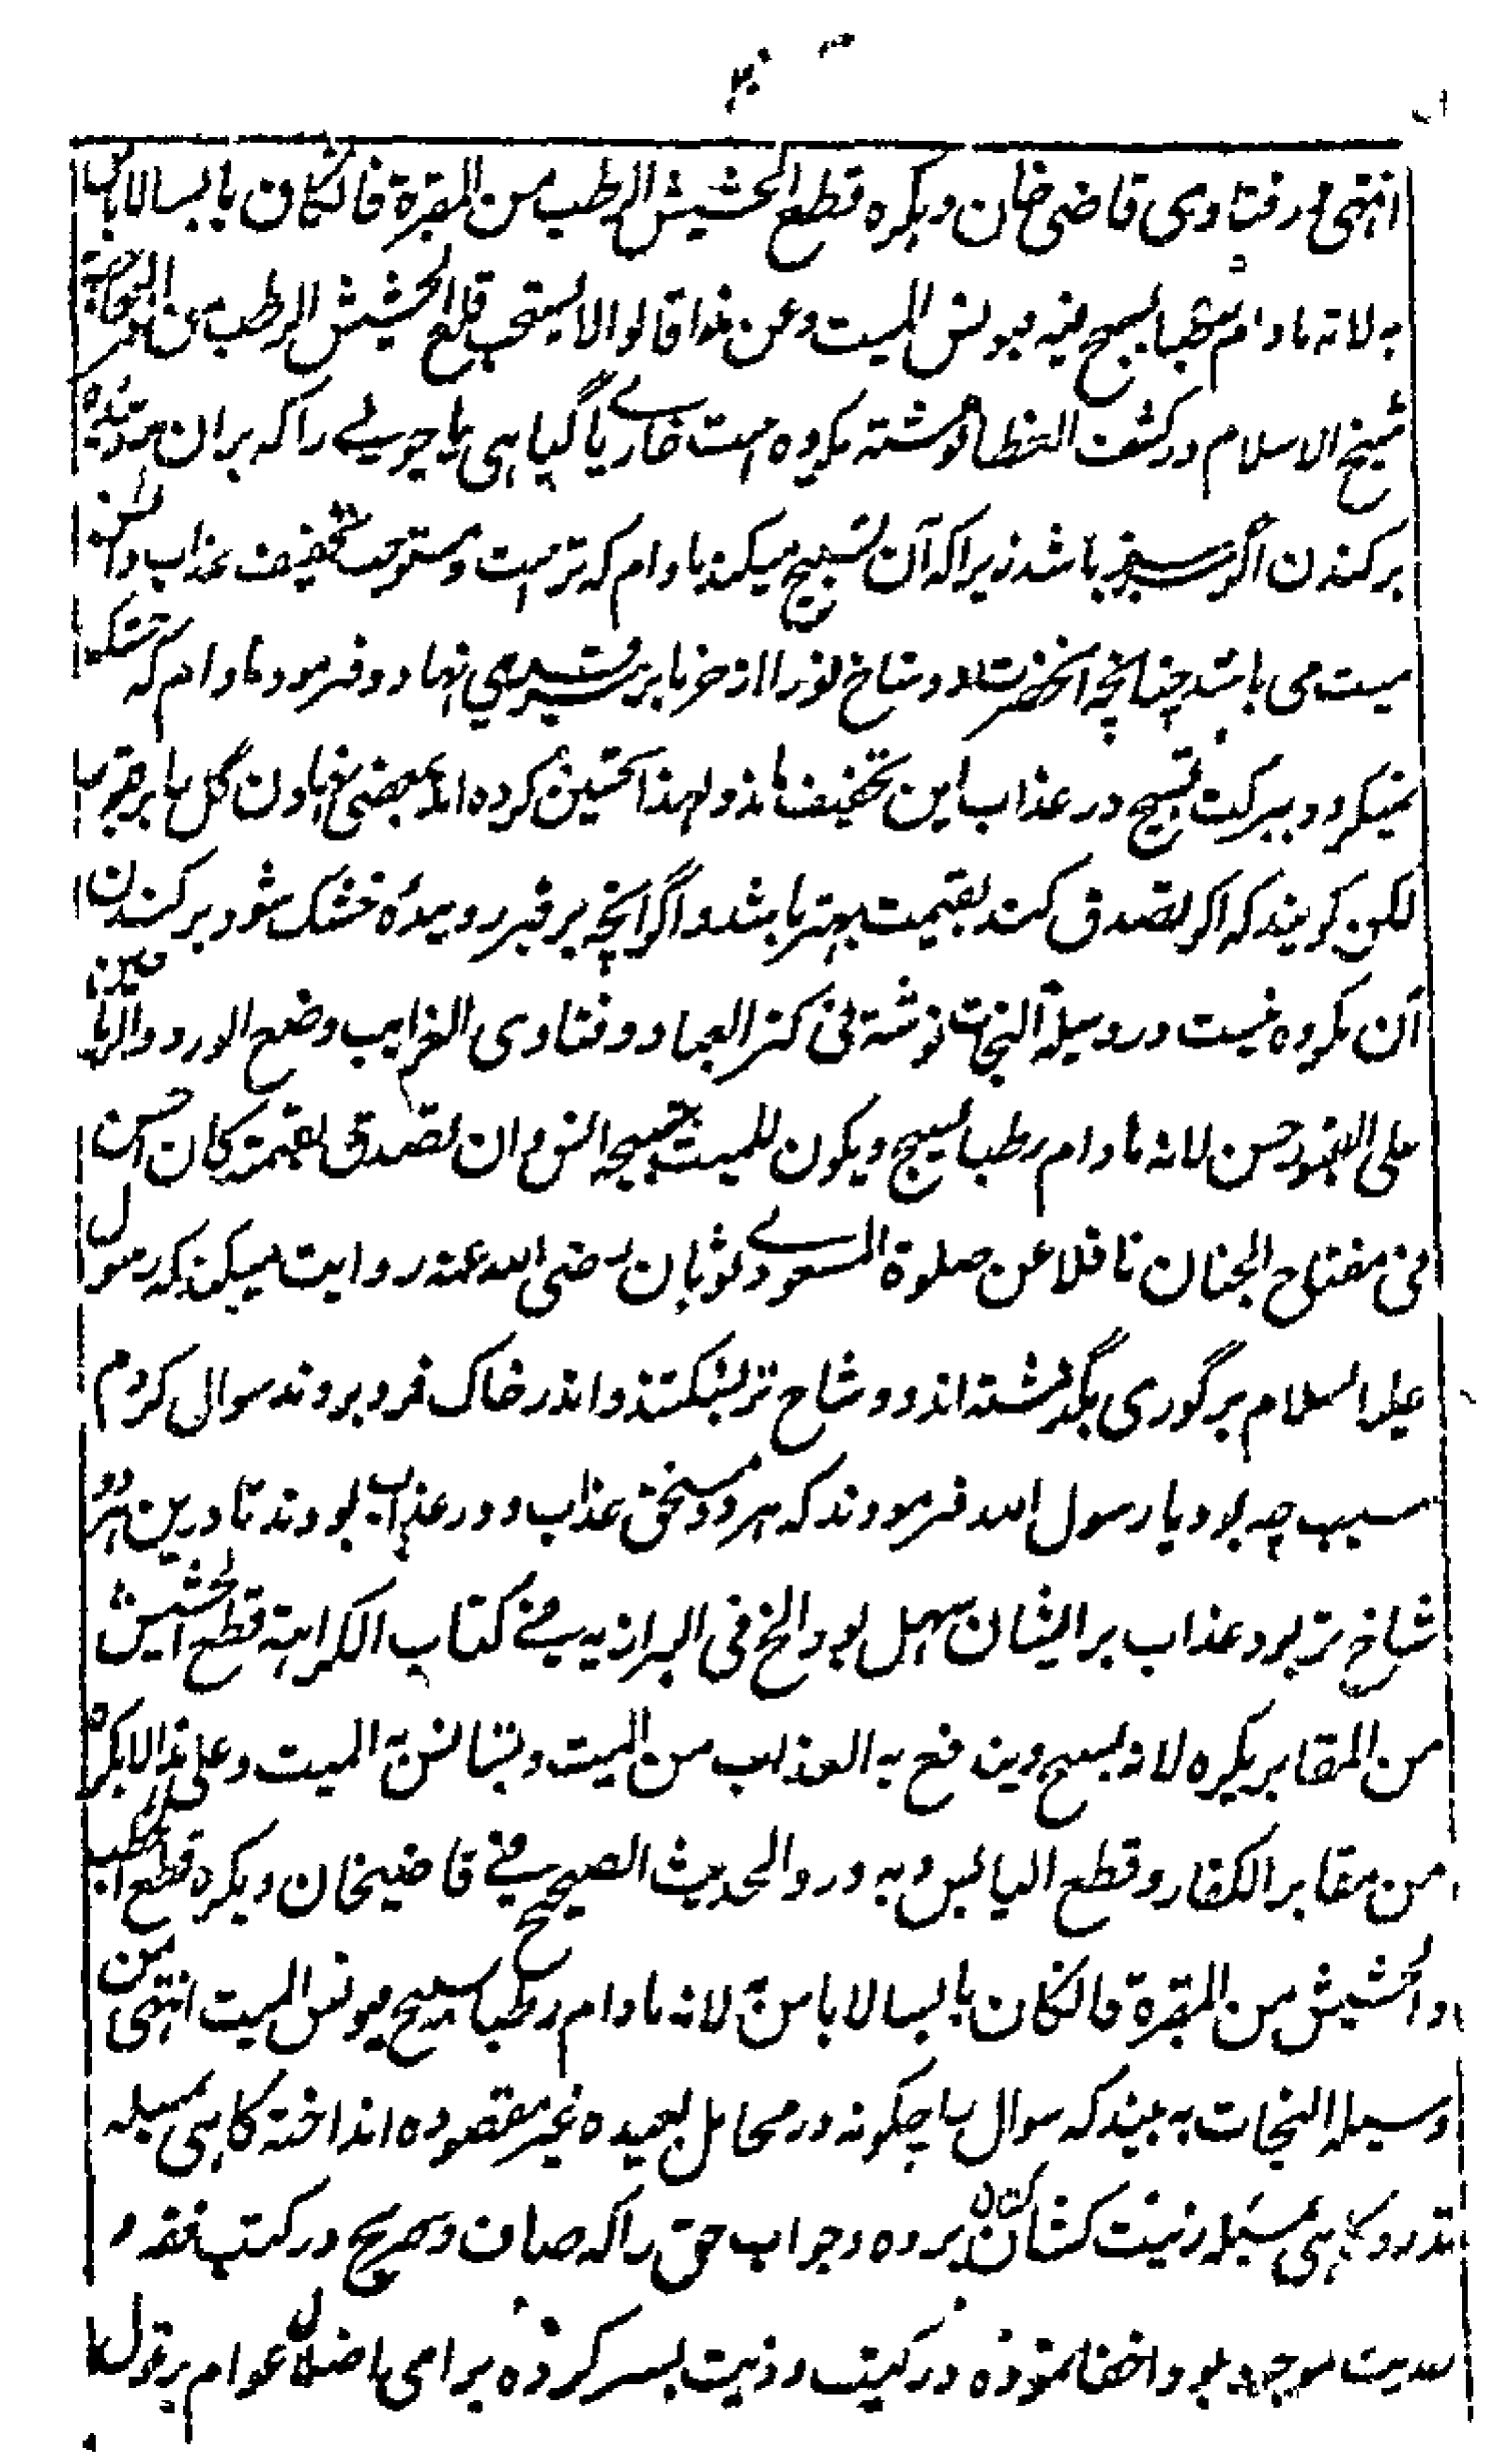 ۳۰
انتهی و در فتاوی قاضی خان ویکره قطع الحشیش الرطب من المقبرة فان کان یابسا لاباس
به لانه مادام رطبا یسبح فیه فیونس المیت وعن هذا قالوا لا یستحب قلع الحشیش الرطب من غیر الحاجة
شیخ الاسلام در کشف الغطا نوشته مکروه است خاری یا گیاهی یا چوبی را که بران روئیده
برکندن اگر سبز باشد زیرا که آن تسبیح میکند مادام که تر است و مستوجب تخفیف عذاب و انس
میت می باشد چنانچه آنحضرت دو شاخ نو را از خرما بر قبری نهاد و فرمود مادام که خشک
نمیگردد ببرکت تسبیح در عذاب این تخفیف ماند و لهذا تحسین کرده اند بعضی نهادن گل ها بر قبر ها
لکن گویند که اگر تصدق کند بقیمت بهتر باشد و اگر آنچه بر قبر روییده خشک شود برکندن
آن مکروه نیست در وسیلة النجات نوشته فی کنز العباد و فتاوی الغرایب وضع الورد والریاحین
علی القبور حسن لانه مادام رطبا یسبح ویکون للمیت بتسبیحه انس وان تصدق بقیمته کان احسن
فی مفتاح الجنان ناقلا عن صلوة المسعودی ثوبان رضی الله عنه روایت میکند که رسول
علیه السلام بر گوری بگذشته اند دو شاخ تر بشکستند و اندر خاک فرو بردند سوال کردم
سبب چه بود یا رسول الله فرمودند که هر دو مستحق عذاب و در عذاب بودند تا درین هر دو
شاخ تر بود عذاب بر ایشان سهل بود الخ فی البزازیه فی کتاب الکراهة قطع الحشیش
من المقابر یکره لانه یسبح ویندفع به العذاب من المیت ویستانس به المیت وعلی هذا لا یکره
من مقابر الکفار و قطع الیابس وبه ورد الحدیث الصحیح فی قاضیخان ویکره قطع الحطب
والحشیش من المقبرة فان کان یابسا لا باس به لانه مادام رطبا یسبح فیونس المیت انتهی من
وسیلة النجات به بیند که سوال ها چگونه در محامل بعیده غیر مقصوده انداخته گاهی بمسئله
نذر و گاهی بمسئله زینت کشان کشان برده و جواب حق را که صاف و صریح در کتب فقه و
حدیث موجود بود اخفا نموده در کیت و ذیت بسر کرده برای اضلال عوام بر قول